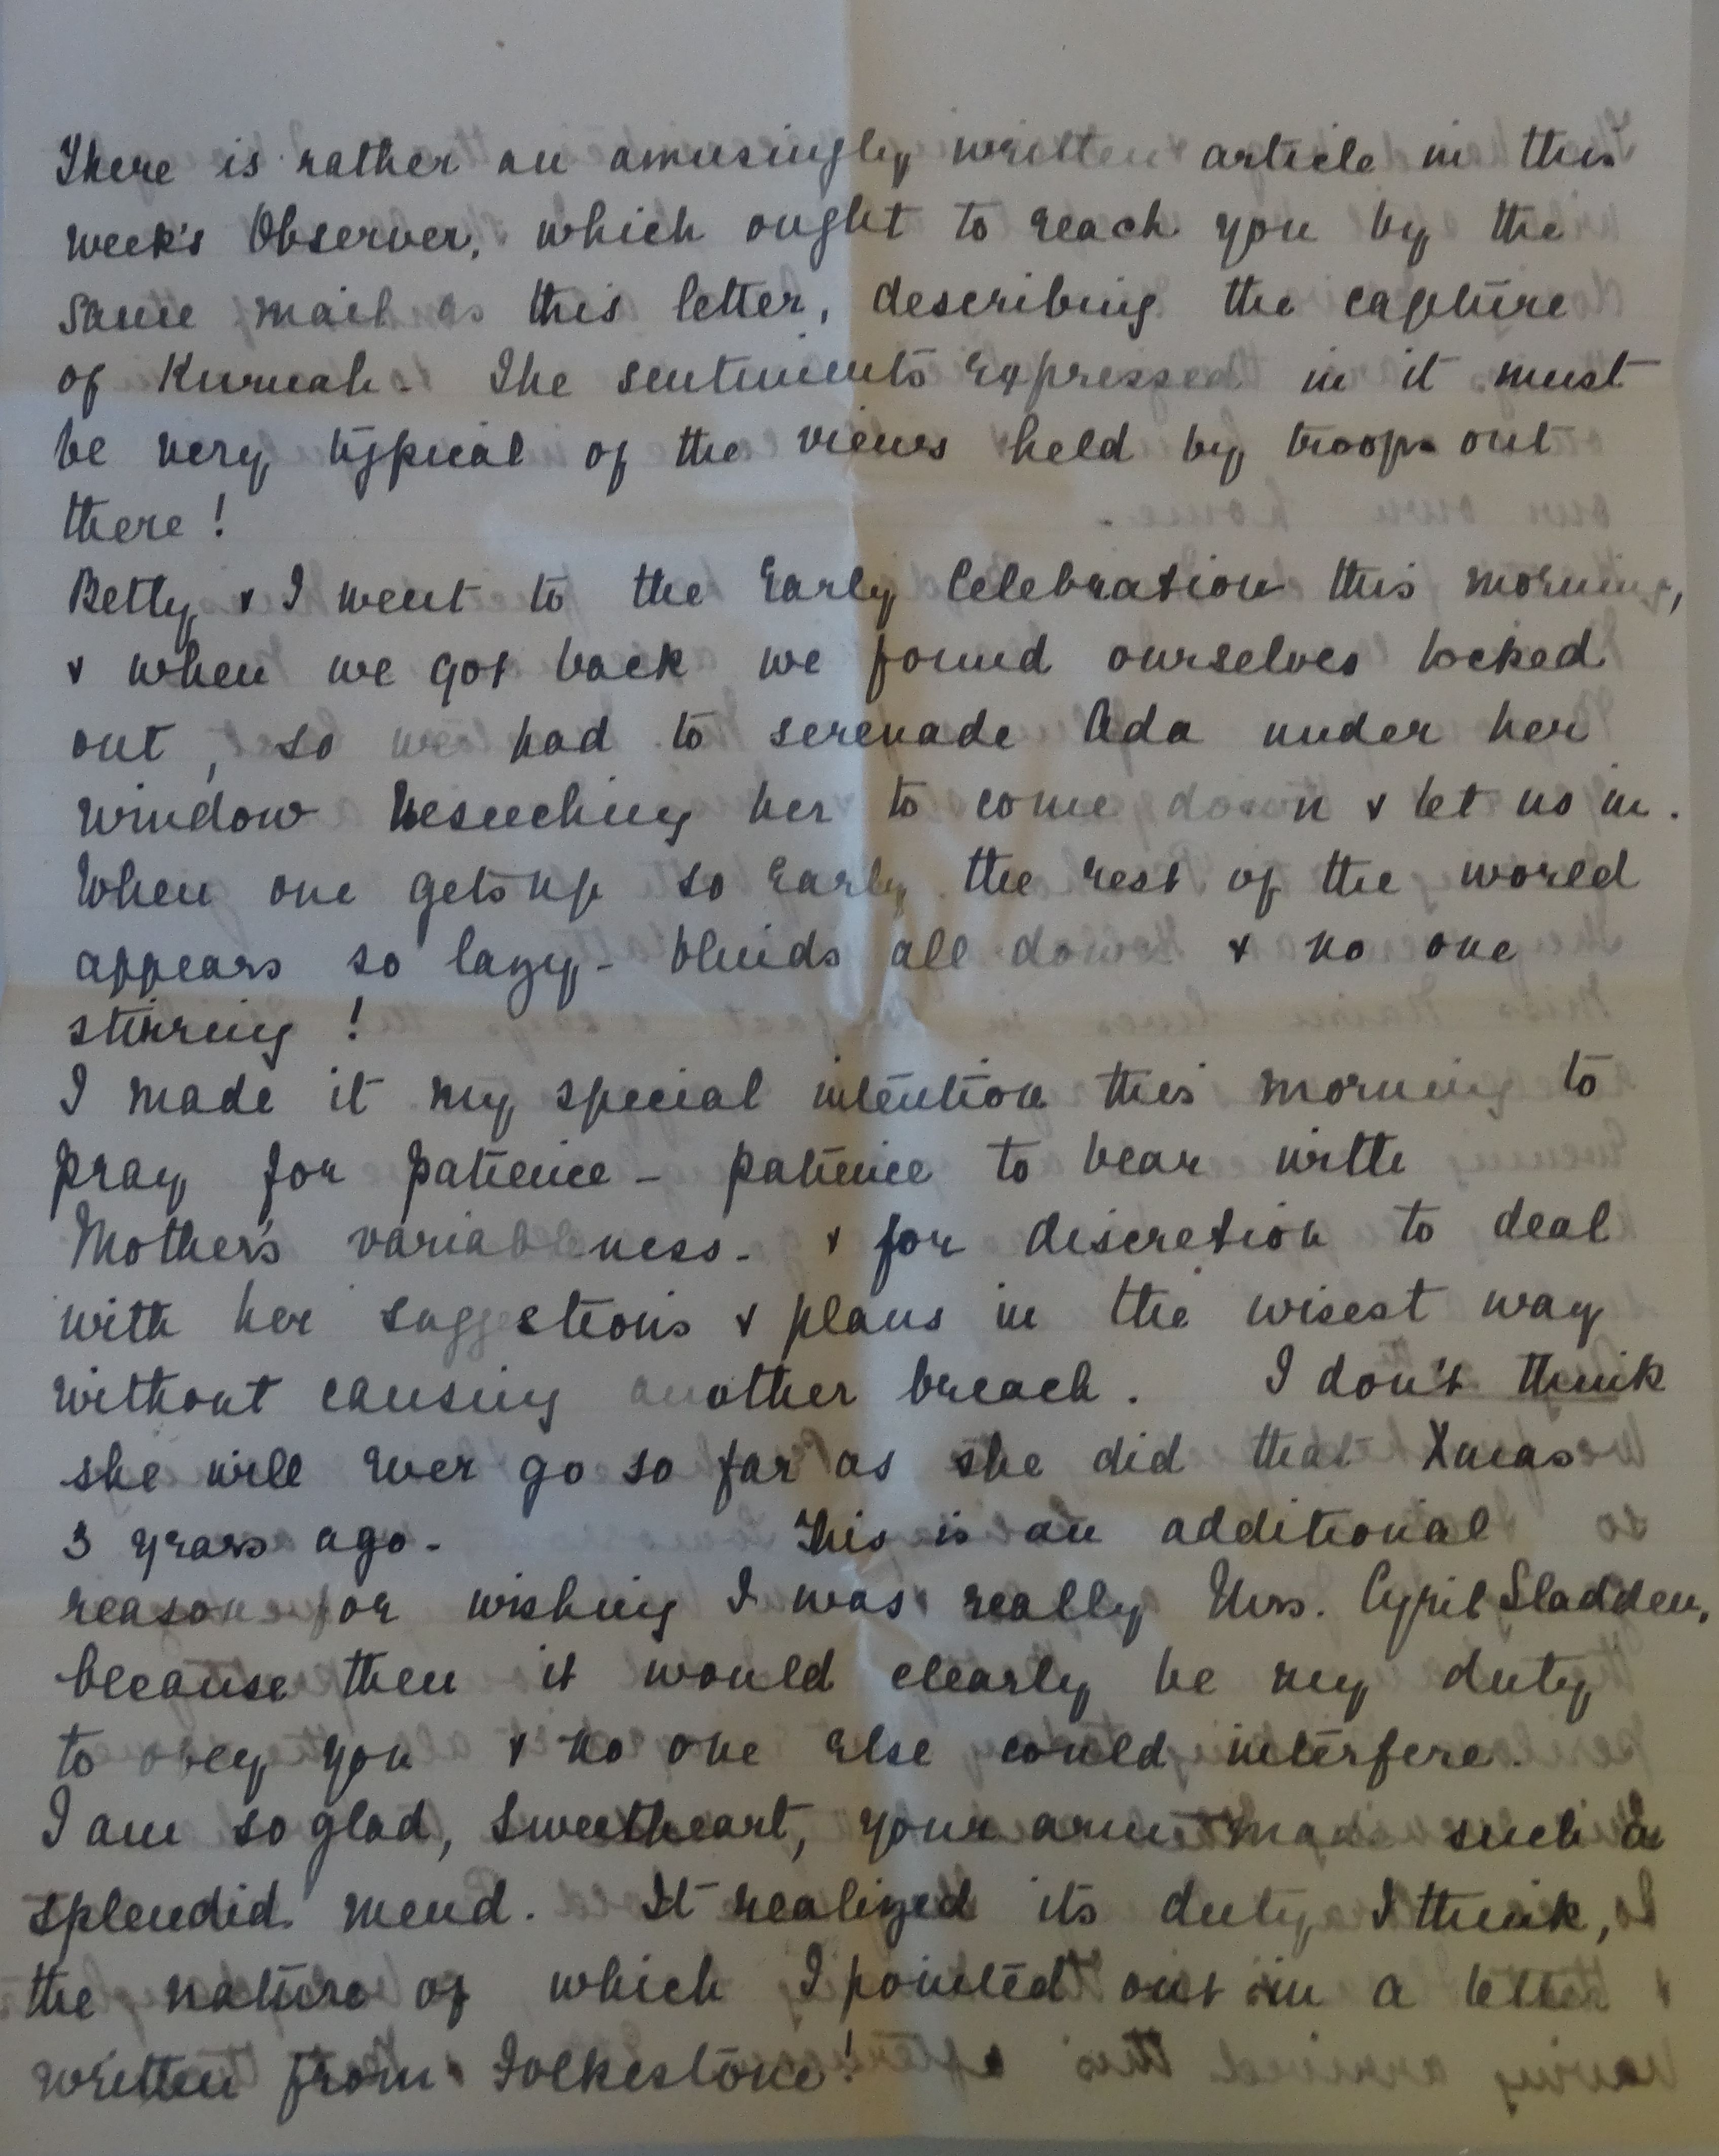 There is rather an amusingly written article in this
week's Observer, which ought to reach you by the
same mail as this letter, describing the capture
of Kurnah. The sentiments expressed in it must
be very typical of the views held by troops out
there!
Betty & I went to the Early Celebration this morning,
& when we got back we found ourselves locked
out, so we had to serenade Ada under her
window beseeching her to come down & let us in.
When one gets up so early the rest of the world
appears so lazy - blinds all down & no one
stirring!
I made it my special intention this morning to
pray for patience - patience to bear with
Mother's variableness - & for discretion to deal
with her suggestions & plans in the wisest way
without causing another breach. I don't think
she will ever go so far as she did that Xmas
3 years ago. This is an additional
reason for wishing I was really Mrs. Cyril Sladden,
because then it would clearly be my duty
to obey you & no one else could interfere.
I am so glad, sweetheart, your arm made such a
splendid mend. It realized its duty, I think,
the nature of which I pointed out in a letter
written from Folkestone!